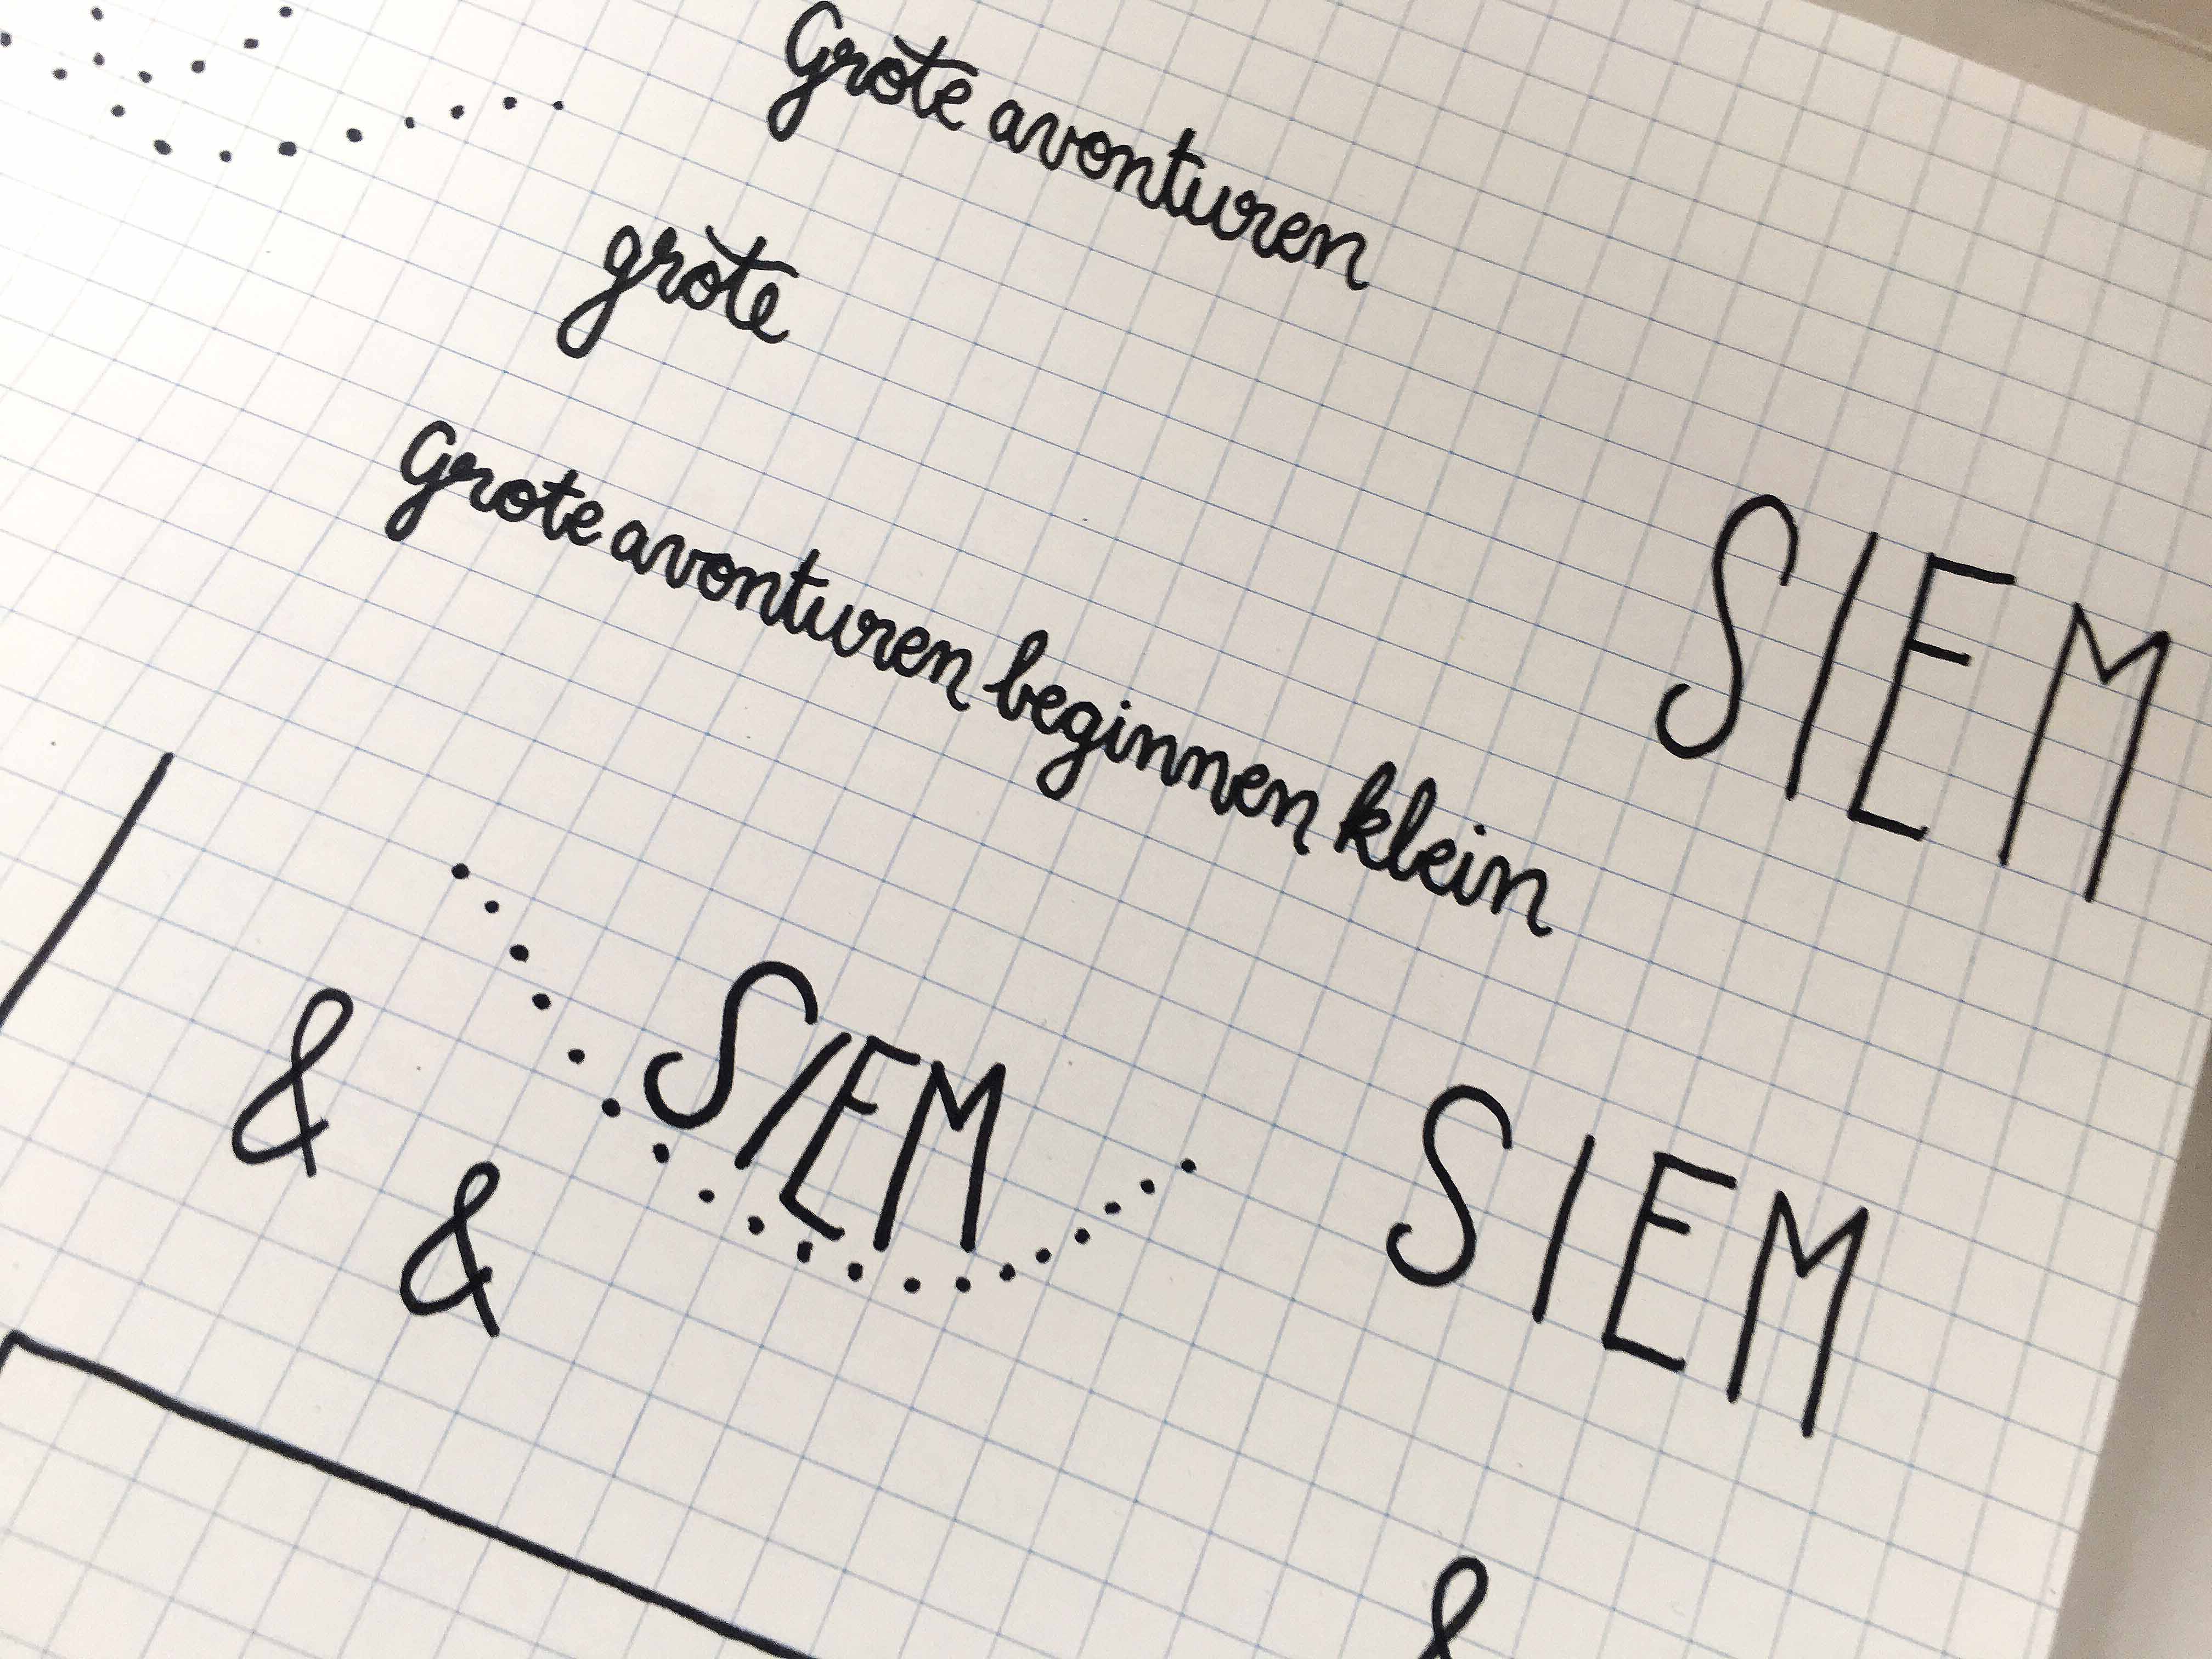 Grote avonturen
grote
Grote avonturen beginnen klein
SIEM
&
SIEM
SIEM
&
&